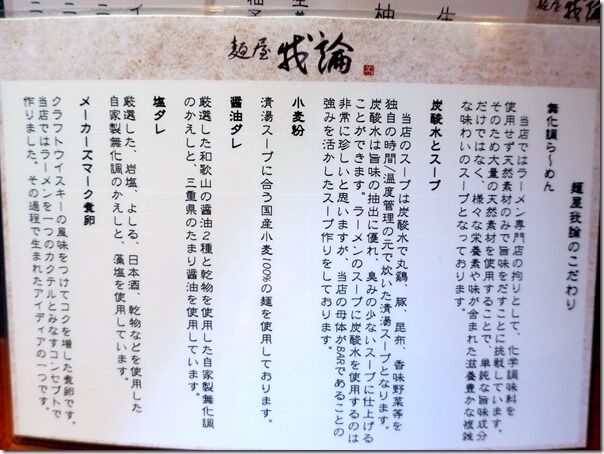 麺屋 我論
麺屋我論のこだわり
無化調らーめん
当店ではラーメン専門店の拘りとして、化学調味料を
使用せず天然素材のみで旨味をだすことに挑戦しています。
そのため大量の天然素材を使用することで、単純な旨味成分
だけではなく、様々な栄養素や味が含まれた滋養豊かな複雑
な味わいのスープとなっております。
炭酸水とスープ
当店のスープは炭酸水で丸鶏、豚、昆布、香味野菜等を
独自の時間/温度管理の元で炊いた清湯スープとなります。
炭酸水は旨味の抽出に優れ、臭みの少ないスープに仕上げる
ことができます。ラーメンのスープに炭酸水を使用するのは
非常に珍しいと思いますが、当店の母体がBARであることの
強みを活かしたスープ作りをしております。
小麦粉
清湯スープに合う国産小麦100%の麺を使用しております。
醤油ダレ
厳選した和歌山の醤油2種と乾物を使用した自家製無化調
のかえしと、三重県のたまり醤油を使用しています。
塩ダレ
厳選した、岩塩、よしる、日本酒、乾物などを使用した
自家製無化調のかえしと、藻塩を使用しています。
メーカーズマーク煮卵
クラフトウイスキーの風味をつけてコクを増した煮卵です。
当店ではラーメンを一つのカクテルとみなすコンセプトで
作りました。その過程で生まれたアイディアの一つです。